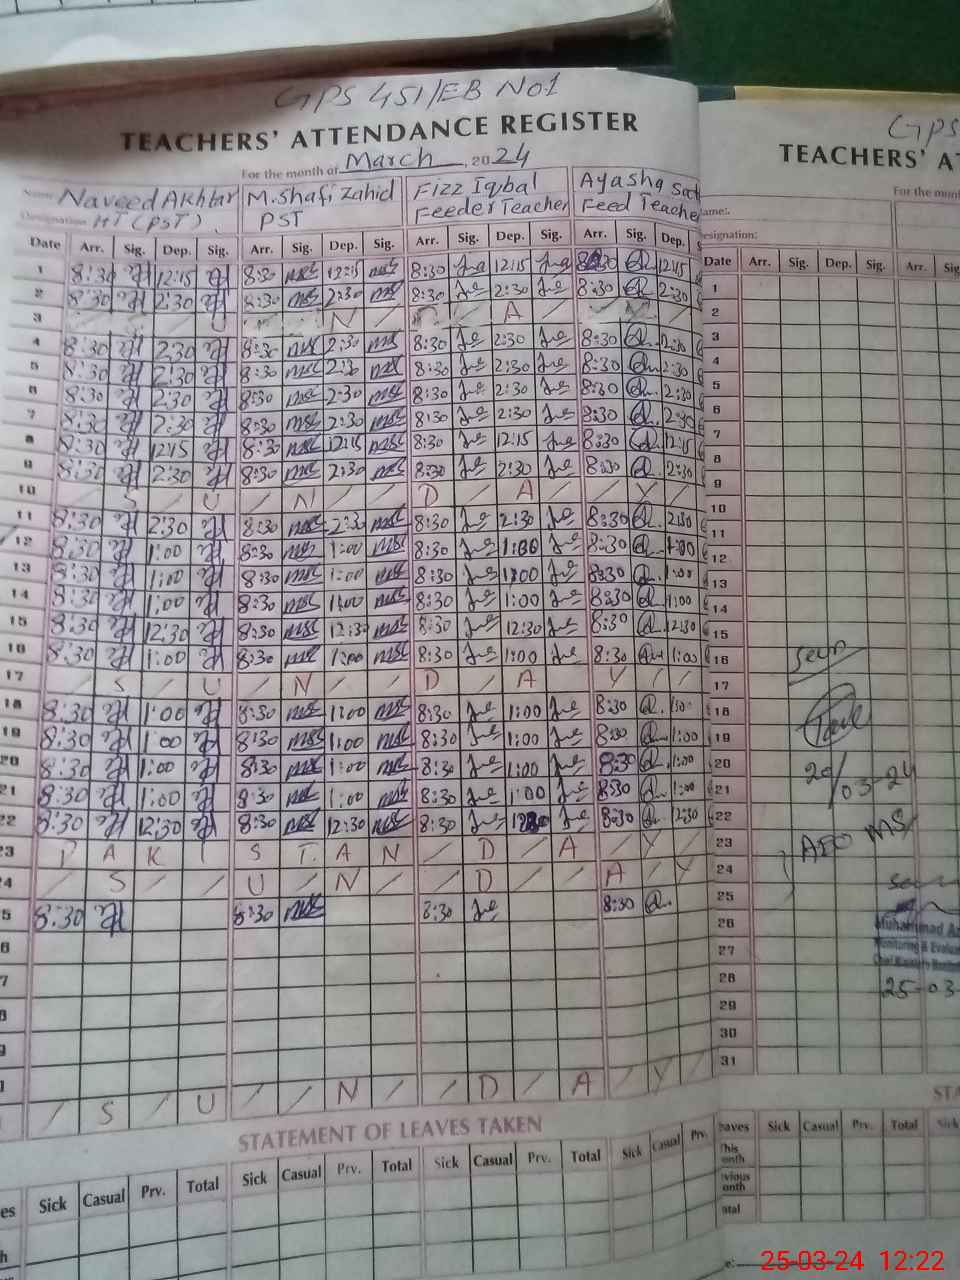 GPS 451/EB No1
TEACHERS' ATTENDANCE REGISTER
For the month of March, 2024
Name: Naveed Akhtar M. Shafi Zahid Fizz Iqbal Ayasha
Designation: HT (PST). PST Feeder Teacher Feed Teache
Date Arr. Sig. Dep. Sig. Arr. Sig. Dep. Sig. Arr. Sig. Dep. Sig. Arr. Sig. Dep.
1 8:30 12:15 8:30 12:15 8:30 12:15 12:15
2 8:30 2:30 8:30 2:30 8:30 2:30 8:30 2:30
3 S U N D A Y
4 8:30 2:30 8:30 2:30 8:30 2:30 8:30 2:30
5 8:30 2:30 8:30 2:30 8:30 2:30 8:30 2:30
6 8:30 2:30 8:30 2:30 8:30 2:30 8:30 2:30
7 8:30 2:30 8:30 2:30 8:30 2:30 8:30 2:30
8 8:30 12:15 8:30 12:15 8:30 12:15 8:30 12:15
9 8:30 2:30 8:30 2:30 8:30 2:30 8:30 2:30
10 / S / U / N / / D / A / / Y /
11 8:30 2:30 8:30 2:30 8:30 2:30 8:30 2:30
12 8:30 1:00 8:30 1:00 8:30 1:00 8:30 1:00
13 8:30 1:00 8:30 1:00 8:30 1:00 8:30 1:00
14 8:30 1:00 8:30 1:00 8:30 1:00 8:30 1:00
15 8:30 12:30 8:30 12:30 8:30 12:30 8:30 12:30
16 8:30 1:00 8:30 1:00 8:30 1:00 8:30 1:00
17 / S / U / N / / D / A / Y / /
18 8:30 1:00 8:30 1:00 8:30 1:00 8:30 1:00
19 8:30 1:00 8:30 1:00 8:30 1:00 8:30 1:00
20 8:30 1:00 8:30 1:00 8:30 1:00 8:30 1:00
21 8:30 1:00 8:30 1:00 8:30 1:00 8:30 1:00
22 8:30 12:30 8:30 12:30 8:30 8:30 12:30
23 P A K I S T A N / D / A / Y /
24 / S / / U / N / / D / / A / Y
5 8:30 8:30 8:30 8:30
6
7
8
9
/ S / U / / N / / D / A / Y /
STATEMENT OF LEAVES TAKEN
es Sick Casual Prv. Total Sick Casual Prv. Total Sick Casual Prv. Total Sick Casual Prv.
h
GPS
TEACHERS' AT
For the mont
ame:
esignation:
Date Arr. Sig. Dep. Sig. Arr. Sig
1
2
3
4
5
6
7
8
9
10
11
12
13
14
15
16
17
18
19
20
21
22
23
24
25
26
27
28
29
30
31
Seen
20/03-24
AEO MS
Seen
Muhammad
Monitoring & Evalua
25-03-
STA
eaves Sick Casual Prv. Total Sick
This
onth
vious
onth
otal
25-03-24 12:22